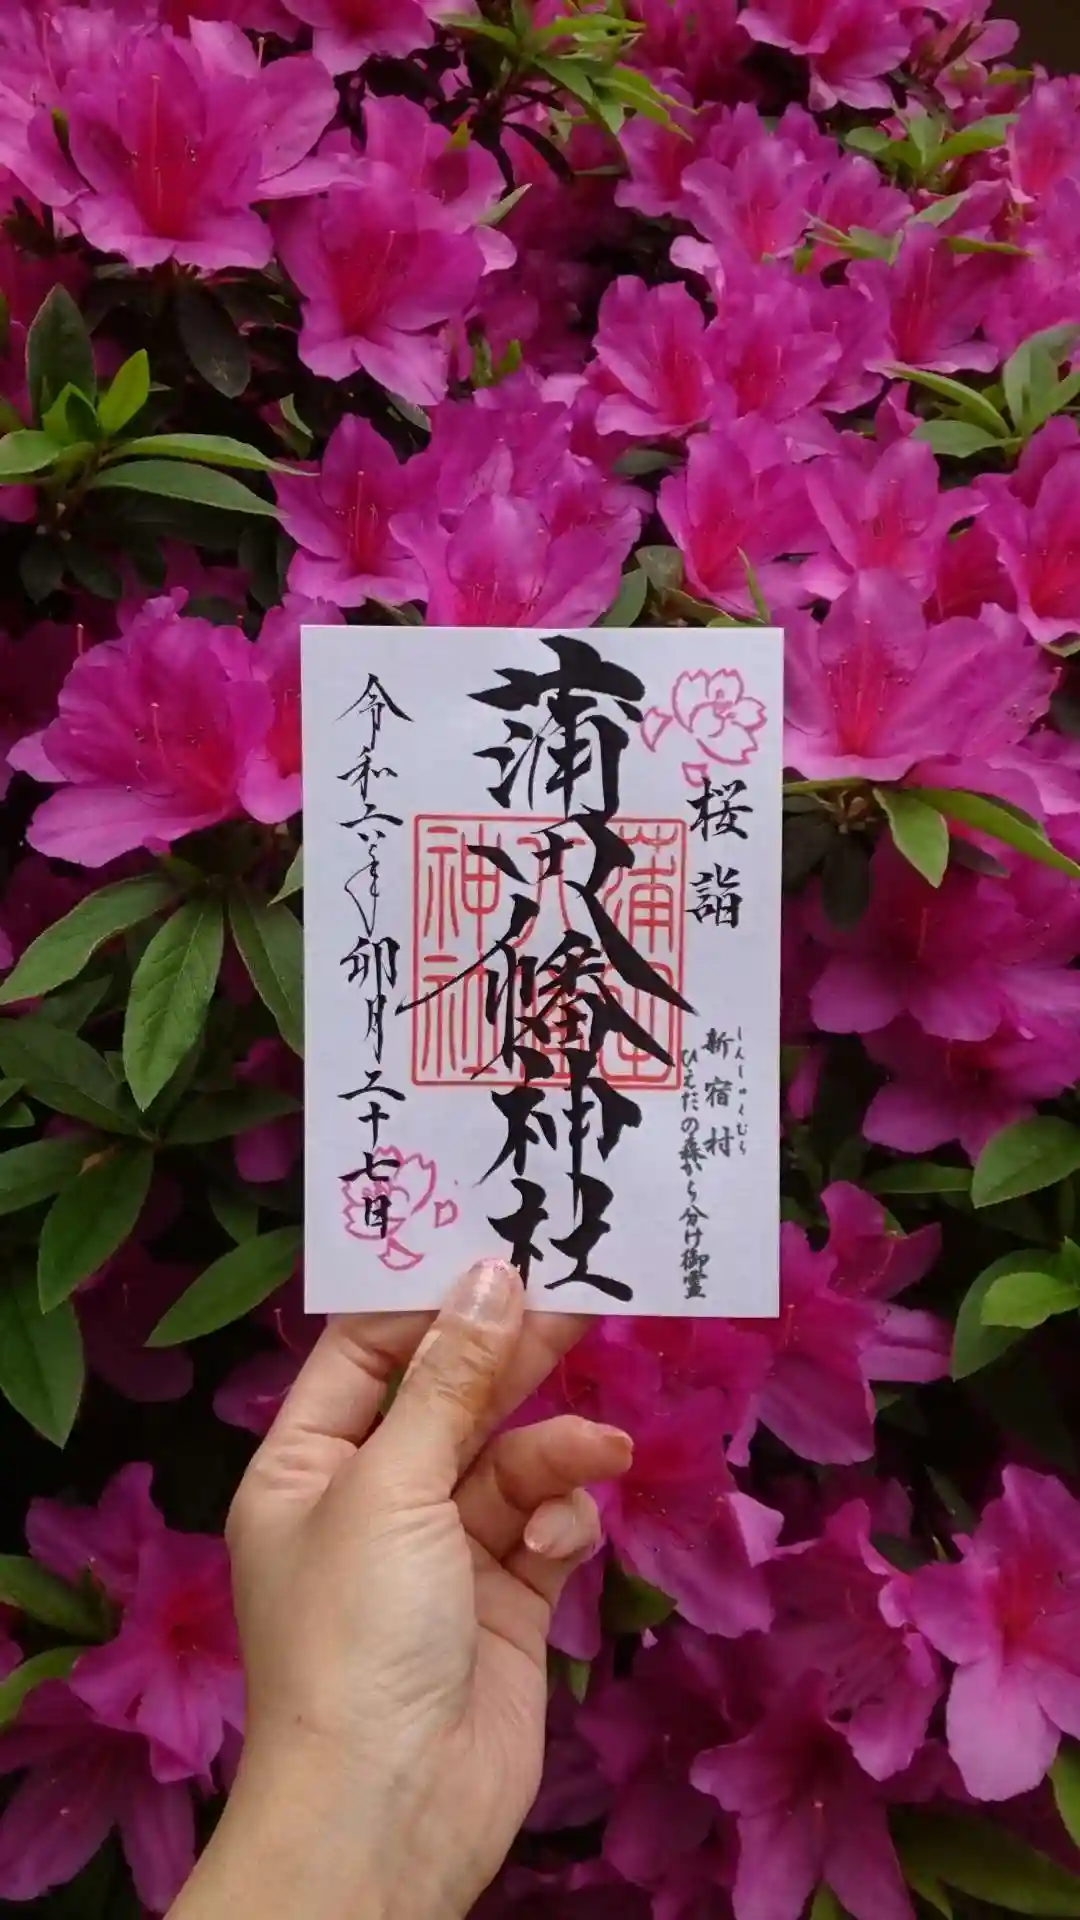 桜詣
しんしゅくむら
新宿村
ひえだの森から分け御霊
蒲田八幡神社
蒲田八幡神社
令和六年卯月二十七日